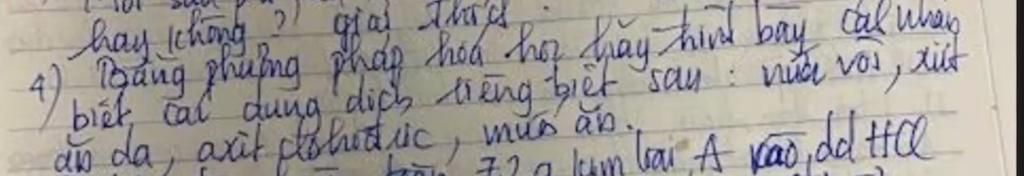 hay không? giải thích.
4) Bằng phương pháp hóa học hãy trình bày cách nhận
biết các dung dịch riêng biệt sau: nước vôi, xút
ăn da, axit clohiđric, muối ăn.
7,2 g kim loại A vào dd HCl